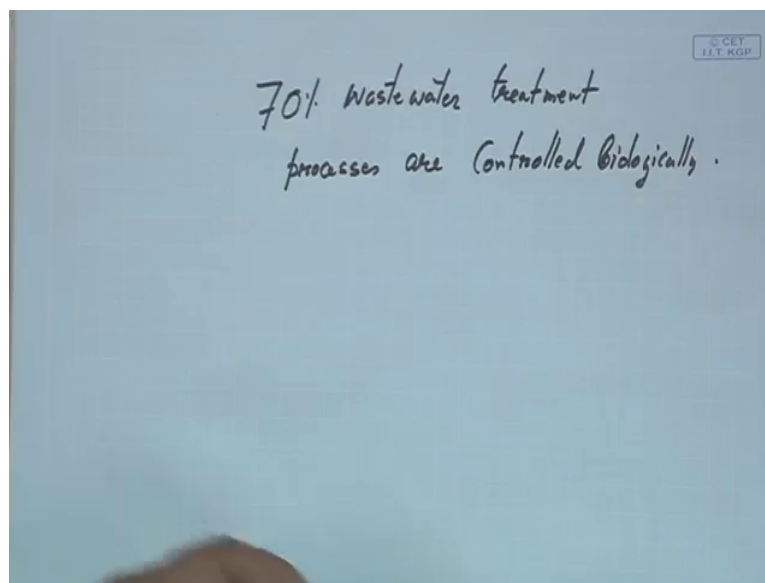 © CET
I.I.T. KGP
70% wastewater treatment
processes are Controlled Biologically.